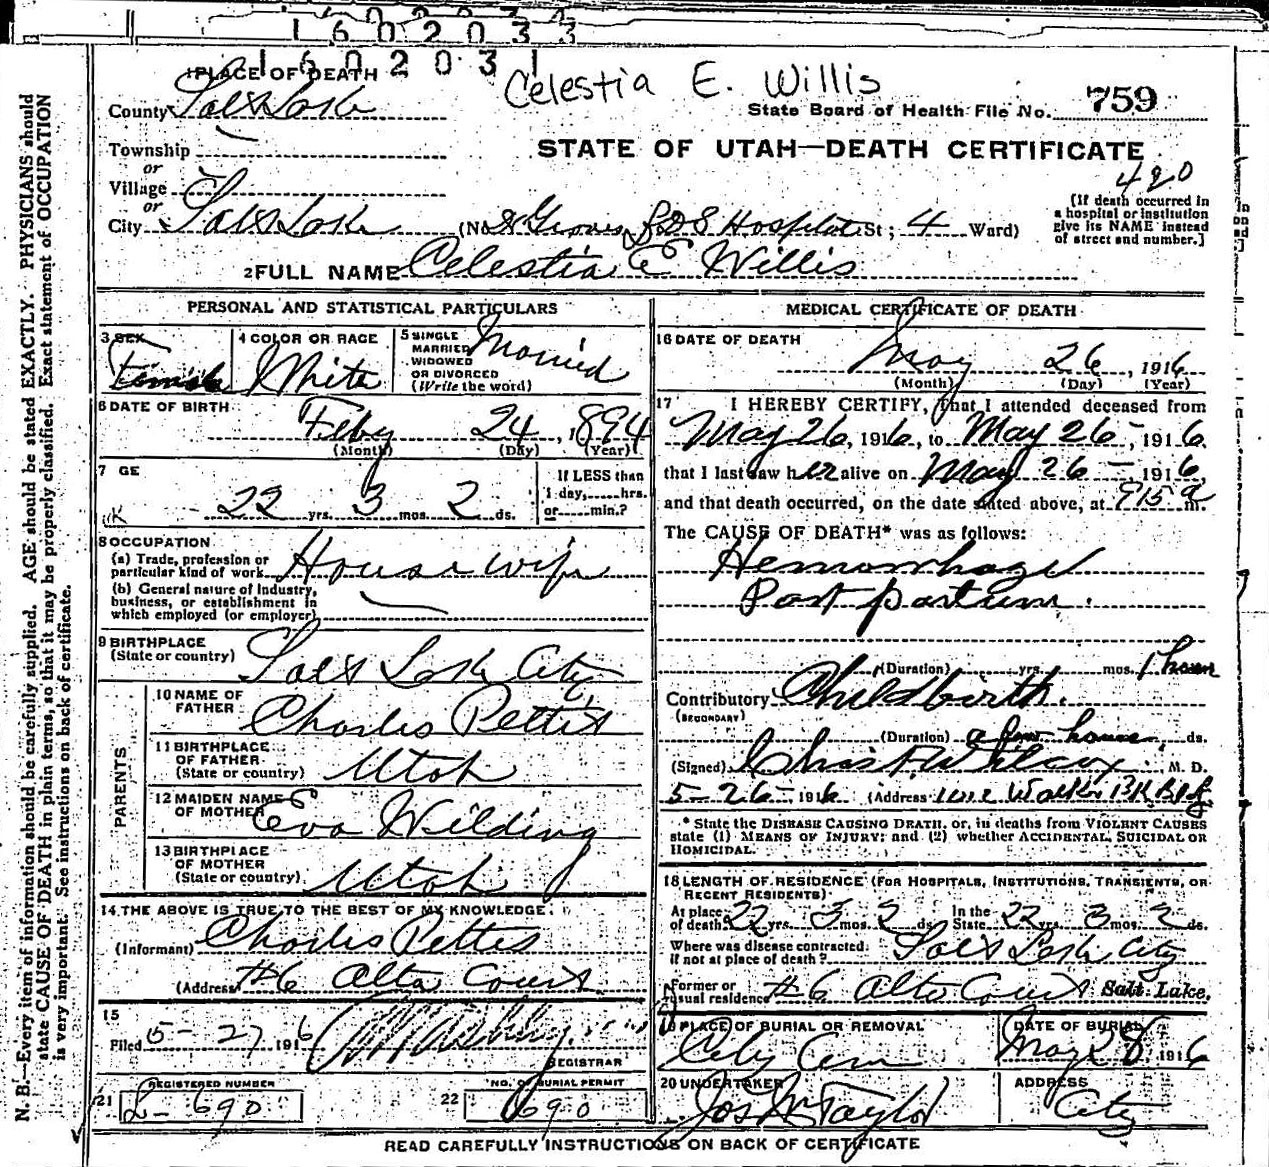 1602033
1602031
1 PLACE OF DEATH
Celestia E. Willis
County Salt Lake
State Board of Health File No. 759
Township
STATE OF UTAH—DEATH CERTIFICATE
or
Village
420
or
City Salt Lake (No. Groves L D S Hospital St; 4 Ward)
[If death occurred in
a hospital or institution
give its NAME instead
of street and number.]
2 FULL NAME Celestia E Willis
PERSONAL AND STATISTICAL PARTICULARS
3 SEX
Female
4 COLOR OR RACE
White
5 SINGLE
MARRIED
WIDOWED
OR DIVORCED
(Write the word)
Married
6 DATE OF BIRTH
Feby 24, 1894
(Month) (Day) (Year)
7 GE
22 yrs. 3 mos. 2 ds.
If LESS than
1 day,......hrs.
or......min.?
8 OCCUPATION
(a) Trade, profession or
particular kind of work
Housewife
(b) General nature of Industry,
business, or establishment in
which employed (or employer)
9 BIRTHPLACE
(State or country)
Salt Lake City
PARENTS
10 NAME OF
FATHER
Charles Pettit
11 BIRTHPLACE
OF FATHER
(State or country)
Utah
12 MAIDEN NAME
OF MOTHER
Eva Wilding
13 BIRTHPLACE
OF MOTHER
(State or country)
Utah
14 THE ABOVE IS TRUE TO THE BEST OF MY KNOWLEDGE.
(Informant) Charles Pettit
(Address #6 Alta Court
15
Filed 5-27 1916
REGISTRAR
REGISTERED NUMBER
21 L- 690
NO. OF BURIAL PERMIT
22 690
MEDICAL CERTIFICATE OF DEATH
16 DATE OF DEATH
May 26, 1916
(Month) (Day) (Year)
17 I HEREBY CERTIFY, that I attended deceased from
May 26, 1916, to May 26-, 1916,
that I last saw her alive on May 26- 1916,
and that death occurred, on the date stated above, at 915 a m.
The CAUSE OF DEATH* was as follows:
Hemorrhage
Post partum.
(Duration) yrs. mos. 1 hour
Contributory Childbirth.
(SECONDARY)
(Duration) a few hours ds.
(Signed) Chas F Wilcox, M. D.
5-26-, 1916 (Address Walker BK Bldg
* State the DISEASE CAUSING DEATH, or, in deaths from VIOLENT CAUSES
state (1) MEANS OF INJURY; and (2) whether ACCIDENTAL, SUICIDAL OR
HOMICIDAL.
18 LENGTH OF RESIDENCE (FOR HOSPITALS, INSTITUTIONS, TRANSIENTS, OR
RECENT RESIDENTS)
At place of death 22 yrs. 3 mos. 2 ds. In the State 22 yrs. 3 mos. 2 ds.
Where was disease contracted
if not at place of death? Salt Lake City
Former or
usual residence #6 Alta Court Salt Lake.
19 PLACE OF BURIAL OR REMOVAL
City Cem
DATE OF BURIAL
May 28 1916
20 UNDERTAKER
Jos Wm Taylor
ADDRESS
City
READ CAREFULLY INSTRUCTIONS ON BACK OF CERTIFICATE
N. B.—Every item of information should be carefully supplied. AGE should be stated EXACTLY. PHYSICIANS should
state CAUSE OF DEATH in plain terms, so that it may be properly classified. Exact statement of OCCUPATION
is very important. See instructions on back of certificate.